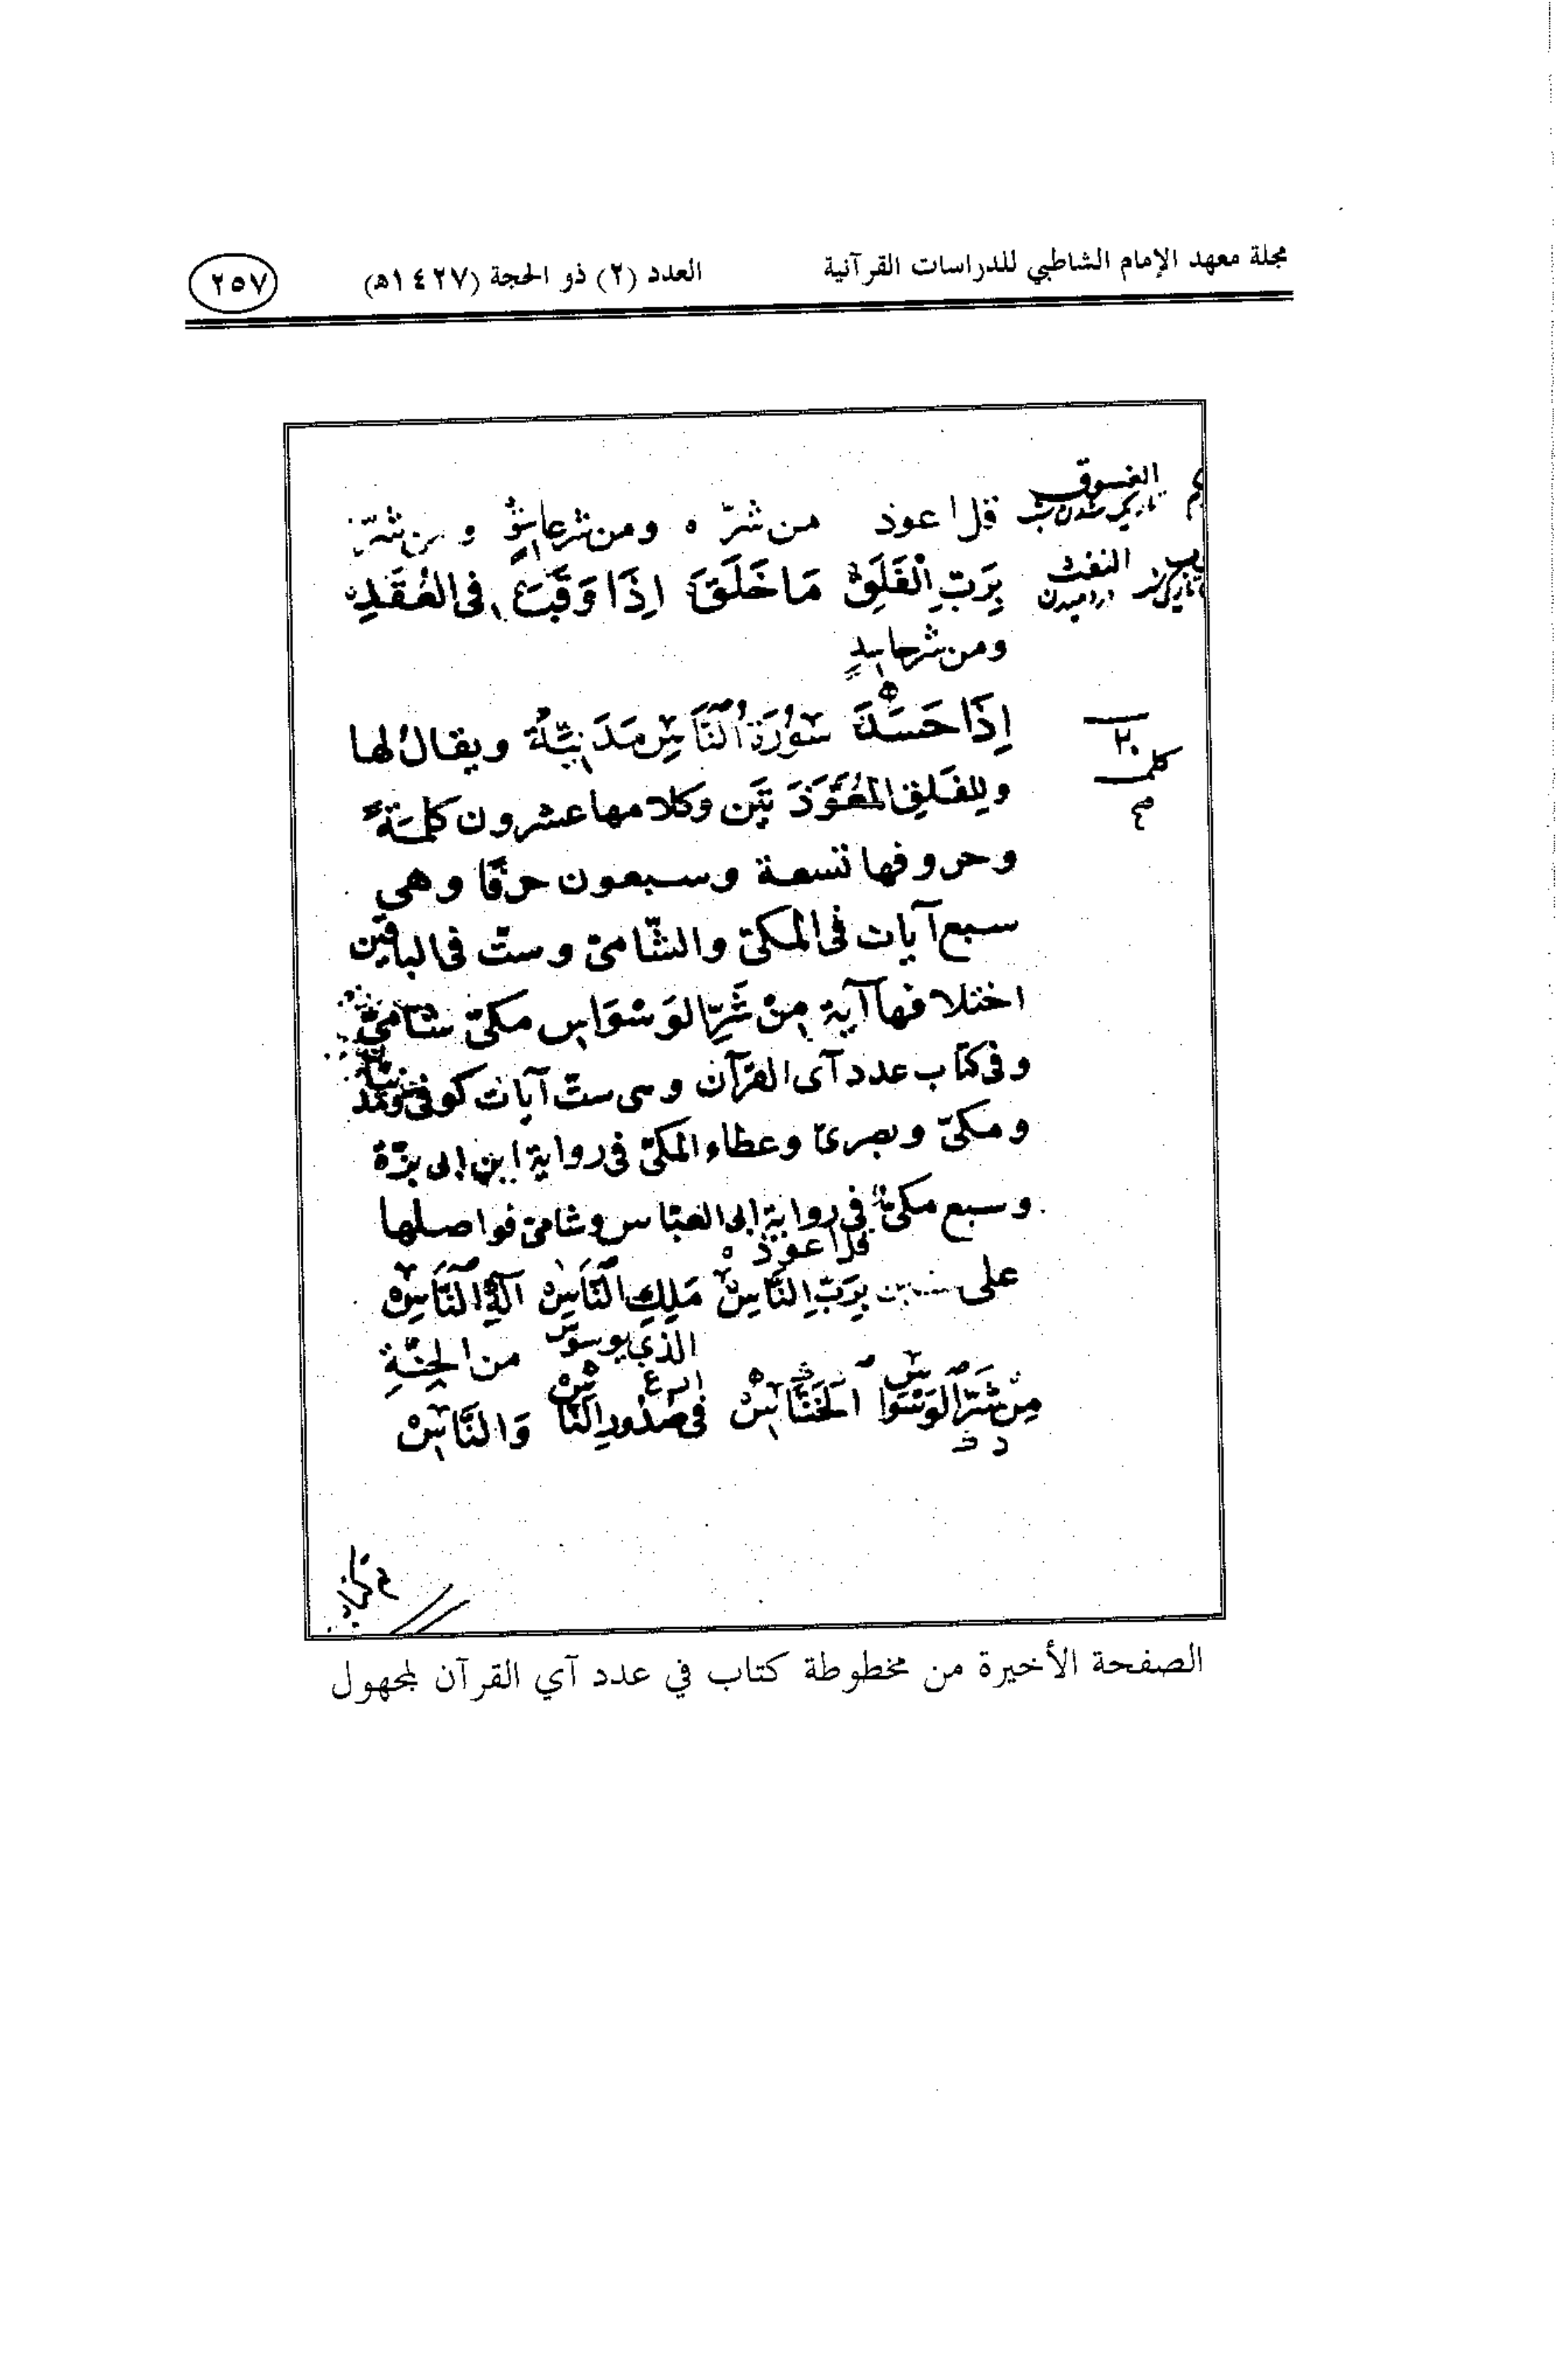 مجلة معهد الإمام الشاطبي للدراسات القرآنية العدد (٢) ذو الحجة (١٤٢٧هـ) ٢٥٧
الغسوق
تاريك شدن شب
قل اعوذ من شرّ ه ومن شر غاسقٍ و من شرّ
النفث
دردميدن
بِرَبِّ الْفَلَقِ مَا خَلَقَ اِذَا وَقَبَ فى العُقَدِ
ومن شر حاسدٍ
اِذَا حَسَدَ سُورَةُ النَّاسِ مَدَنِيَّةٌ ويقال لها
٢٠
كلمه
صح
وللفلق المُعَوَّذَتَين وكلامها عشرون كلمَةً
وحروفها تسعة وسبعون حرفًا وهى
سبع آيات فى المكىّ والشّامىّ وستّ فى الباقين
اختلافها آية مِنْ شَرِّ الوَسْوَاسِ مكىّ شامىّ
وفى كتاب عدد آى القرآن وهى ستّ آيات كوفى ومد
ومكىّ وبصرىّ وعطاء المكىّ فى رواية ابن ابى بزّة
وسبع مكىّ فى رواية ابى العبّاس وشامىّ فواصلها
قل اعوذ ه
على سين بِرَبِّ النَّاسِ مَلِكِ النَّاسِ اله النَّاسِ
الذى يوسوس من الجِنَّةِ
مِنْ شَرِّ الوَسْوَاس الخَنَّاسِ فى صُدُورِ النَّاسِ وَالنَّاسِ
الصفحة الأخيرة من مخطوطة كتاب في عدد آي القرآن لمجهول